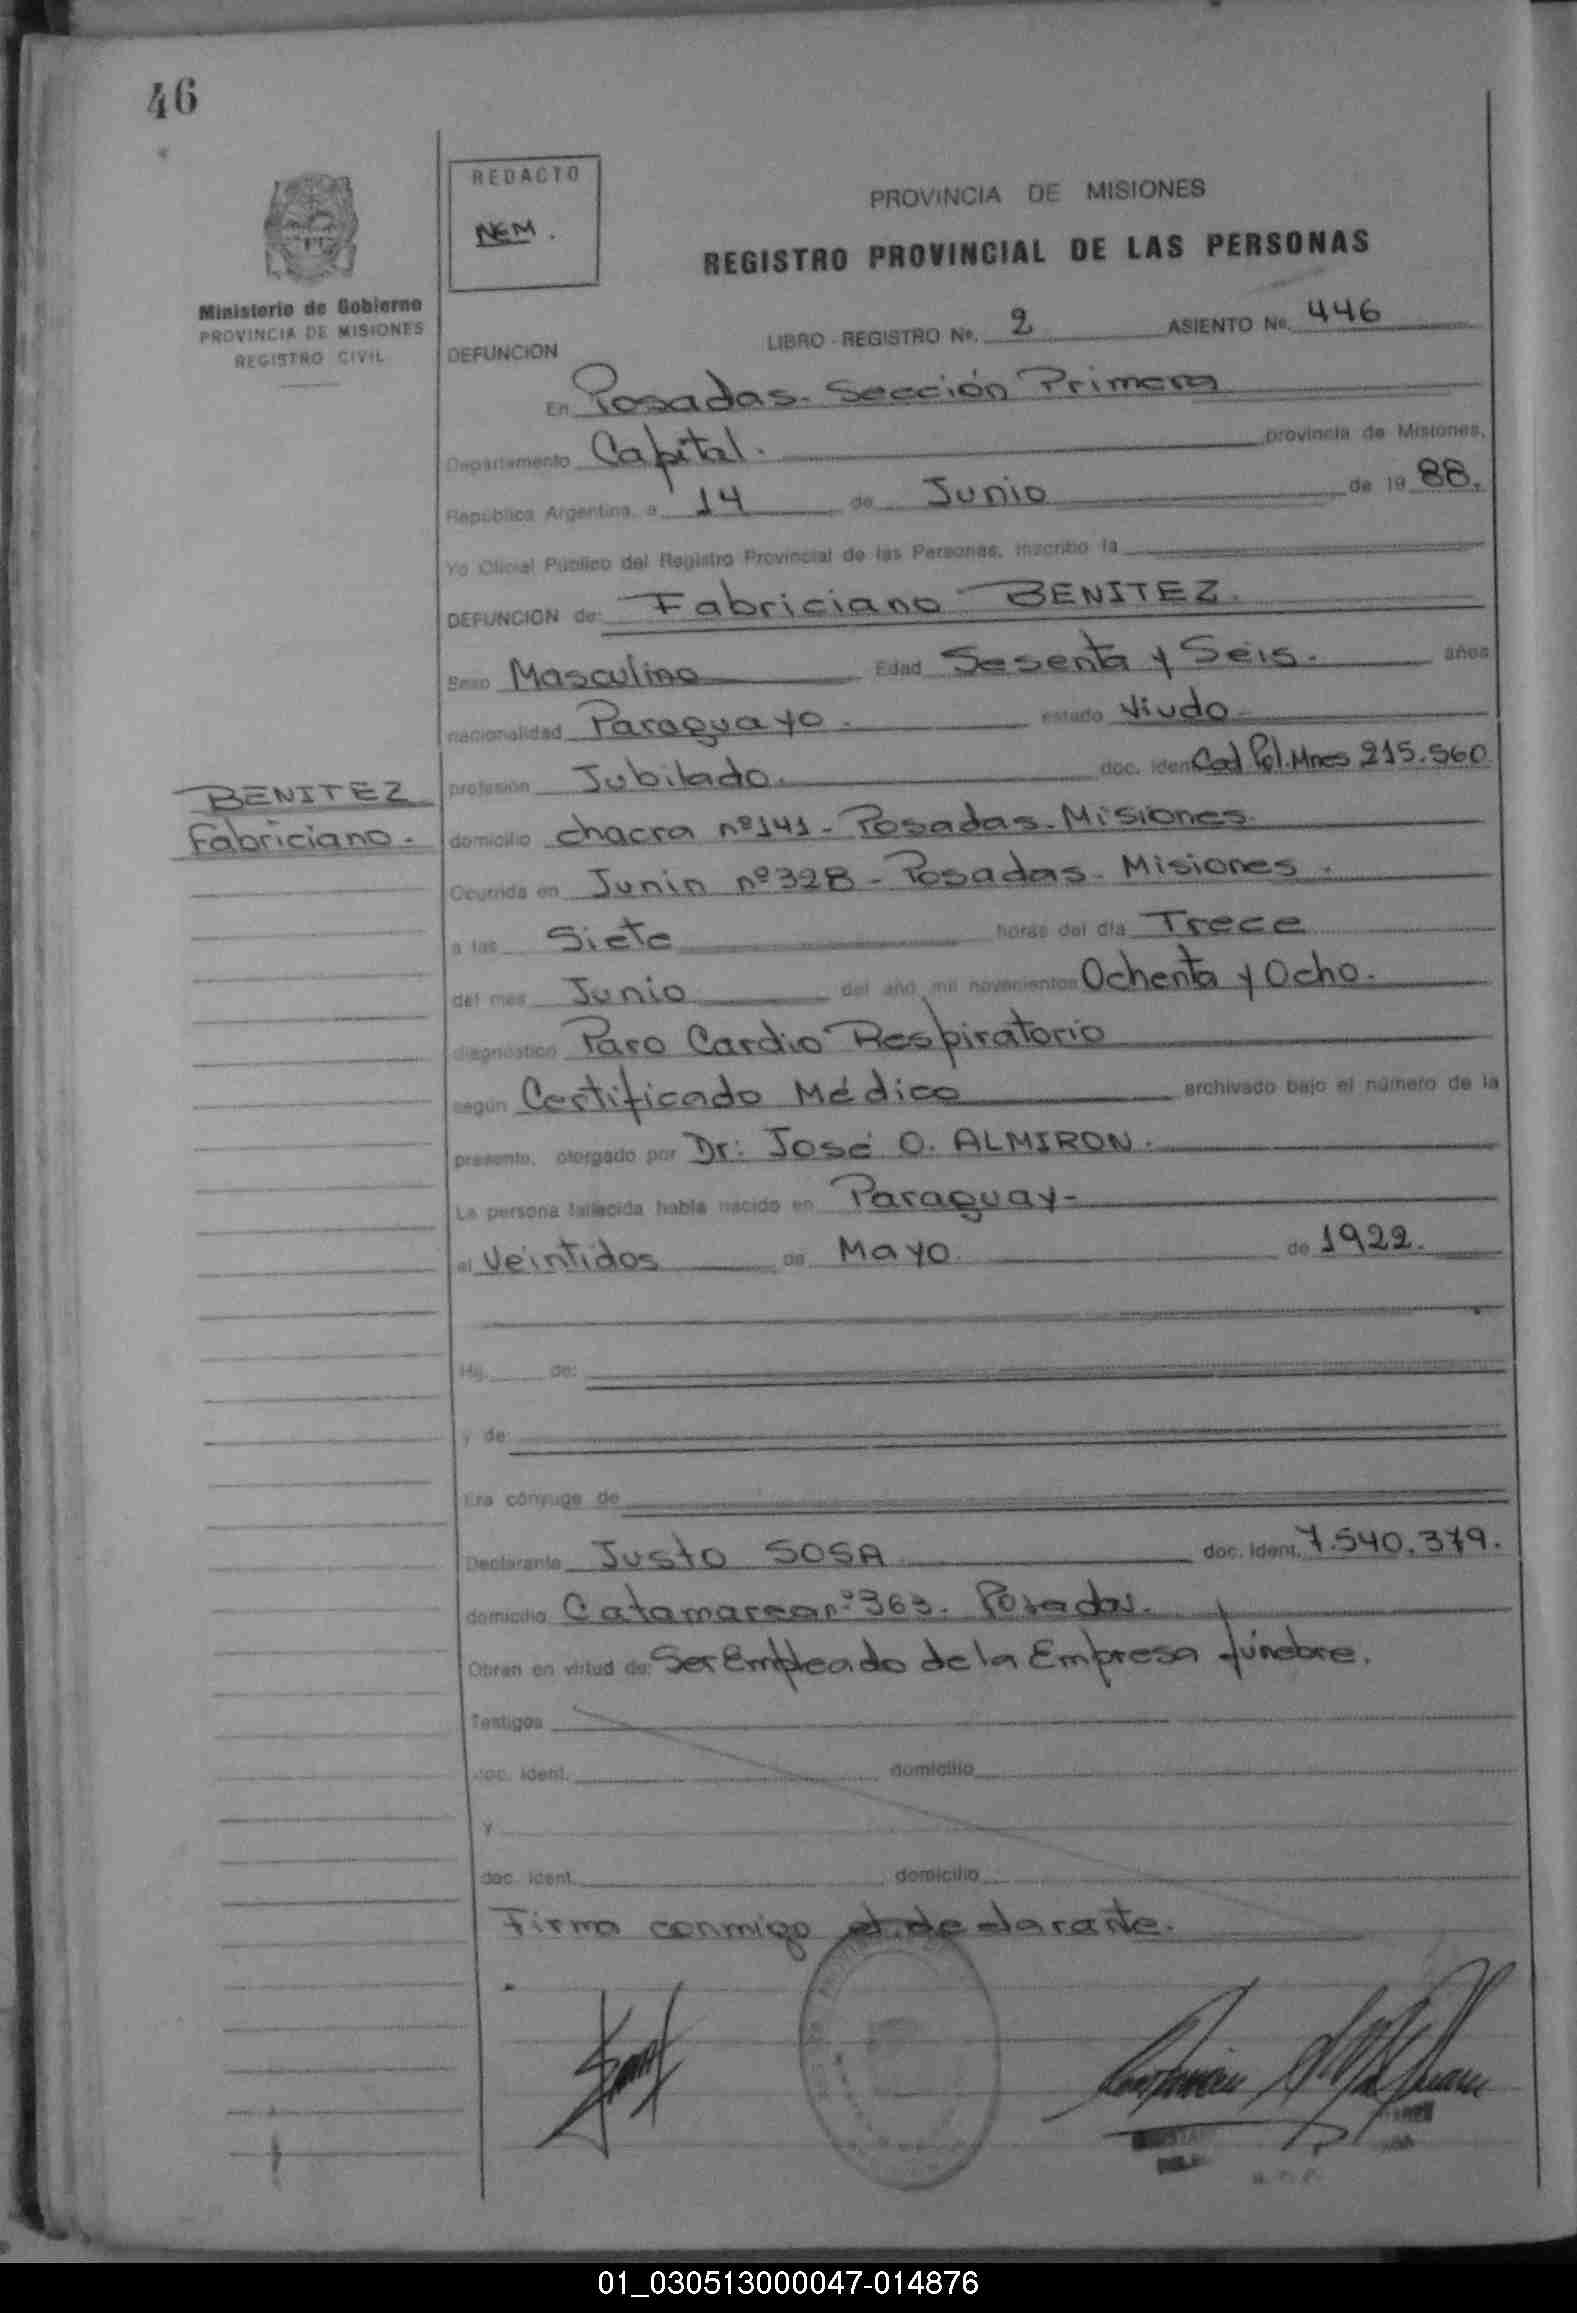 46
REDACTO
NEM.
PROVINCIA DE MISIONES
REGISTRO PROVINCIAL DE LAS PERSONAS
Ministerio de Gobierno
PROVINCIA DE MISIONES
REGISTRO CIVIL
DEFUNCION LIBRO - REGISTRO No. 2 ASIENTO No. 446
En Posadas. Sección Primera
Departamento Capital. provincia de Misiones,
República Argentina, a 14 de Junio de 19 88.
Yo Oficial Público del Registro Provincial de las Personas, inscribo la
DEFUNCION de: Fabriciano BENITEZ.
Sexo Masculino Edad Sesenta y Seis. años
nacionalidad Paraguayo. estado Viudo
profesión Jubilado. doc. iden Cad. Pol. Mnes 215.560
BENITEZ
Fabriciano.
domicilio chacra nº 141 - Posadas. Misiones.
Ocurrida en Junin nº 328 - Posadas. Misiones.
a las Siete horas del día Trece
del mes Junio del año mil novecientos Ochenta y Ocho.
diagnóstico Paro Cardio Respiratorio
según Certificado Médico archivado bajo el número de la
presente, otorgado por Dr: José O. ALMIRON.
La persona fallecida había nacido en Paraguay-
el Veintidos de Mayo. de 1922.
Hij de:
y de
Era cónyuge de
Declarante Justo SOSA doc. ident. 7.540.379.
domicilio Catamarca nº 363. Posadas.
Obran en virtud de: Ser Empleado de la Empresa fúnebre.
Testigos
doc. ident. domicilio
y
doc. ident. domicilio
Firma conmigo el declarante.
01_030513000047-014876